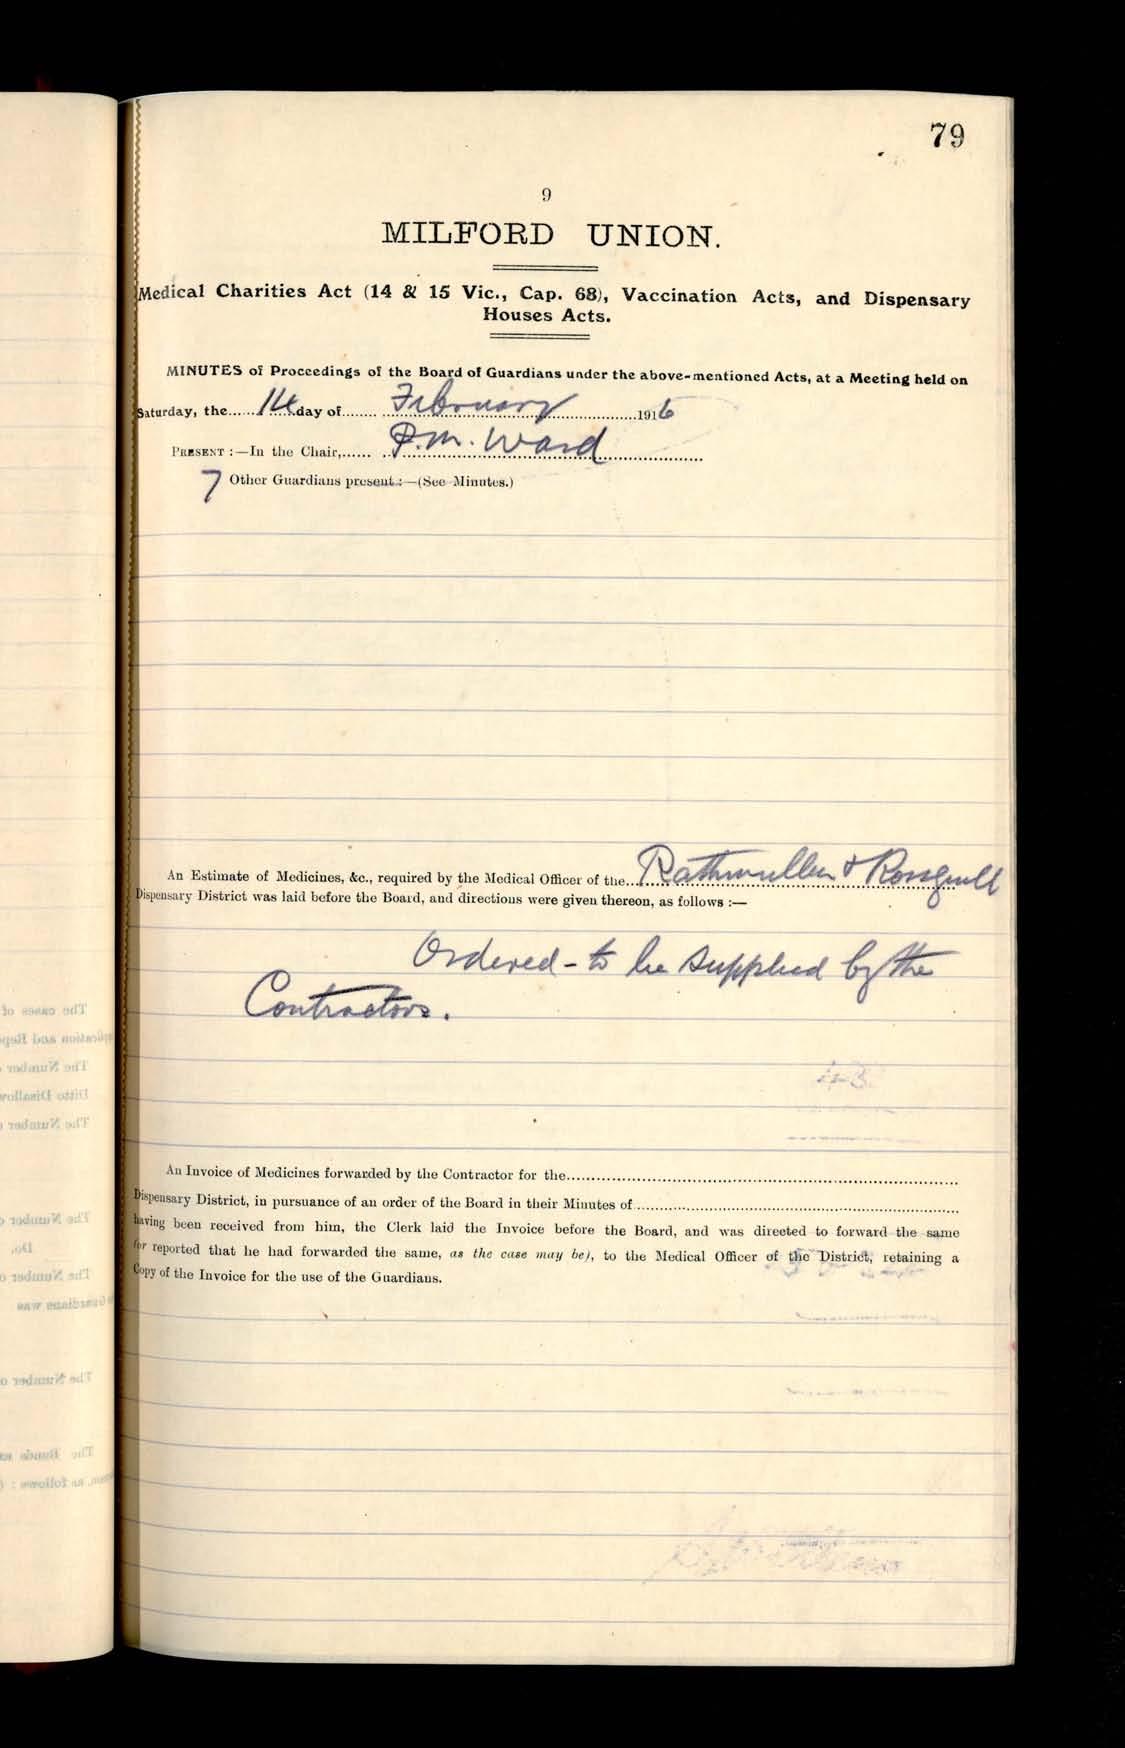 79
9
MILFORD UNION.
Medical Charities Act (14 & 15 Vic., Cap. 68), Vaccination Acts, and Dispensary
Houses Acts.
MINUTES of Proceedings of the Board of Guardians under the above-mentioned Acts, at a Meeting held on
Saturday, the 14 day of February 1916
PRESENT :—In the Chair, P.M. Ward
7 Other Guardians present :—(See Minutes.)
An Estimate of Medicines, &c., required by the Medical Officer of the Rathmullen & Rossguill
Dispensary District was laid before the Board, and directions were given thereon, as follows :—
Ordered - to be supplied by the
Contractors.
An Invoice of Medicines forwarded by the Contractor for the
Dispensary District, in pursuance of an order of the Board in their Minutes of
having been received from him, the Clerk laid the Invoice before the Board, and was directed to forward the same
(or reported that he had forwarded the same, as the case may be), to the Medical Officer of the District, retaining a
Copy of the Invoice for the use of the Guardians.